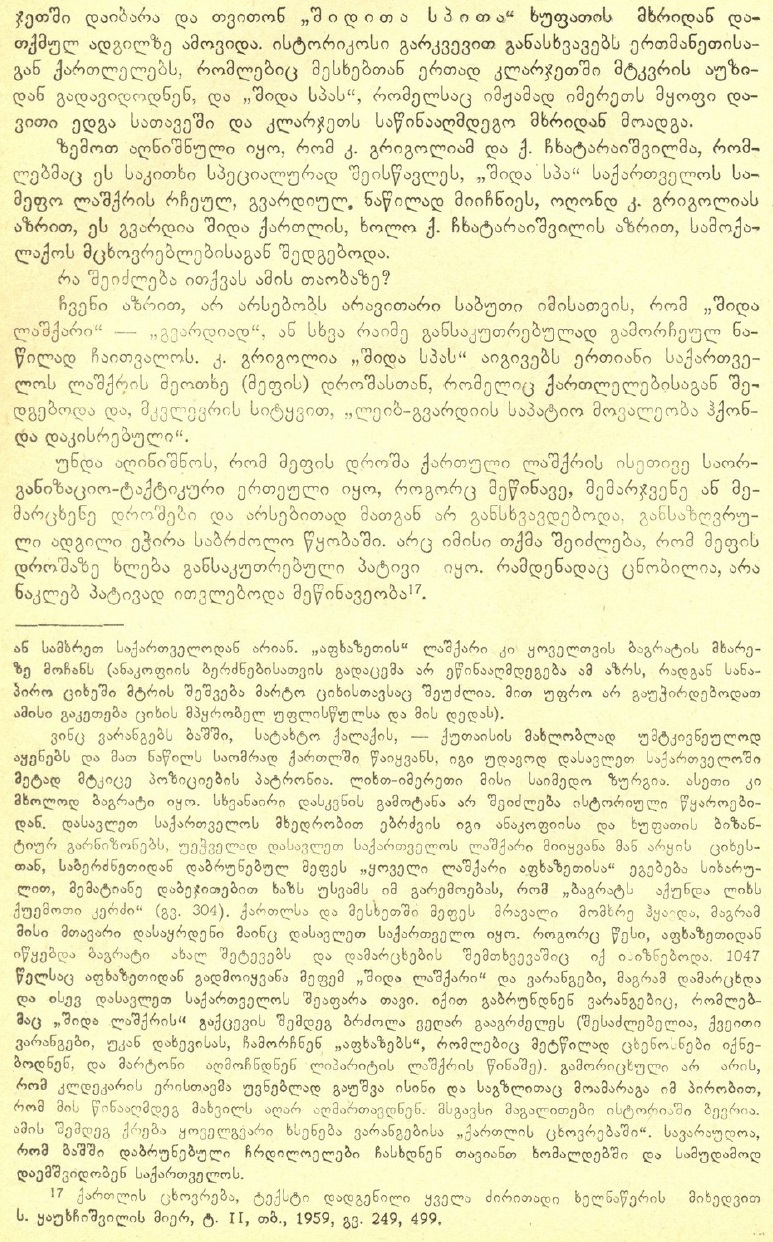 ჯეთში დაიბარა და თვითონ „შიდითა სპითა“ ხუფათის მხრიდან და-
თქმულ ადგილზე ამოვიდა. ისტორიკოსი გარკვევით განასხვავებს ერთმანეთისა-
გან ქართლელებს, რომლებიც მესხებთან ერთად კლარჯეთში მტკვრის აუზი-
დან გადავიდოდნენ, და „შიდა სპას“, რომელსაც იმჟამად იმერეთს მყოფი და-
ვითი ედგა სათავეში და კლარჯეთს საწინააღმდეგო მხრიდან მოადგა.
ზემოთ აღნიშნული იყო, რომ კ. გრიგოლიამ და ქ. ჩხატარაიშვილმა, რომ-
ლებმაც ეს საკითხი სპეციალურად შეისწავლეს, „შიდა სპა“ საქართველოს სა-
მეფო ლაშქრის რჩეულ, გვარდიულ, ნაწილად მიიჩნიეს, ოღონდ კ. გრიგოლიას
აზრით, ეს გვარდია შიდა ქართლის, ხოლო ქ. ჩხატარაიშვილის აზრით, სამოქა-
ლაქოს მცხოვრებლებისაგან შედგებოდა.
რა შეიძლება ითქვას ამის თაობაზე?
ჩვენი აზრით, არ არსებობს არავითარი საბუთი იმისათვის, რომ „შიდა
ლაშქარი“ — „გვარდიად“, ან სხვა რაიმე განსაკუთრებულად გამორჩეულ ნა-
წილად ჩაითვალოს. კ. გრიგოლია „შიდა სპას“ აიგივებს ერთიანი საქართვე-
ლოს ლაშქრის მეოთხე (მეფის) დროშასთან, რომელიც ქართლელებისაგან შე-
დგებოდა და, მკვლევრის სიტყვით, „ლეიბ-გვარდიის საპატიო მოვალეობა ჰქონ-
და დაკისრებული“.
უნდა აღინიშნოს, რომ მეფის დროშა ქართული ლაშქრის ისეთივე საორ-
განიზაციო-ტაქტიკური ერთეული იყო, როგორც მეწინავე, მემარჯვენე ან მე-
მარცხენე დროშები და არსებითად მათგან არ განსხვავდებოდა, განსაზღვრუ-
ლი ადგილი ეჭირა საბრძოლო წყობაში. არც იმისი თქმა შეიძლება, რომ მეფის
დროშაზე ხლება განსაკუთრებული პატივი იყო. რამდენადაც ცნობილია, არა
ნაკლებ პატივად ითვლებოდა მეწინავეობა¹⁷.
ან სამხრეთ საქართველოდან არიან. „აფხაზეთის“ ლაშქარი კი ყოველთვის ბაგრატის მხარე-
ზე მოჩანს (ანაკოფიის ბერძნებისათვის გადაცემა არ ეწინააღმდეგება ამ აზრს, რადგან სანა-
პირო ციხეში მტრის შეშვება მარტო ციხისთავსაც შეუძლია. მით უფრო არ გაუჭირდებოდათ
ამისი გაკეთება ციხის მპყრობელ უფლისწულსა და მის დედას).
ვინც ვარანგებს ბაშში, სატახტო ქალაქის, — ქუთაისის მახლობლად უმტკივნეულოდ
აყენებს და მათ ნაწილს საომრად ქართლში წაიყვანს, იგი უდავოდ დასავლეთ საქართველოში
მეტად მტკიცე პოზიციების პატრონია. ლიხთ-იმერეთი მისი საიმედო ზურგია. ასეთი კი
მხოლოდ ბაგრატი იყო. სხვანაირი დასკვნის გამოტანა არ შეიძლება ისტორიული წყაროები-
დან. დასავლეთ საქართველოს მხედრობით ებრძვის იგი ანაკოფიისა და ხუფათის ბიზან-
ტიურ გარნიზონებს, უეჭველად დასავლეთ საქართველოს ლაშქარი მიიყვანა მან არყის ციხეს-
თან, საბერძნეთიდან დაბრუნებულ მეფეს „ყოველი ლაშქარი აფხაზეთისა“ ეგებება სიხარუ-
ლით, მემატიანე დაბეჯითებით ხაზს უსვამს იმ გარემოებას, რომ „ბაგრატს აქუნდა ლიხს
ქუემოთი კერძი“ (გვ. 304). ქართლსა და მესხეთში მეფეს მრავალი მომხრე ჰყავდა, მაგრამ
მისი მთავარი დასაყრდენი მაინც დასავლეთ საქართველო იყო. როგორც წესი, აფხაზეთიდან
იწყებდა ბაგრატი ახალ შეტევებს და დამარცხების შემთხვევაშიც იქ იხიზნებოდა. 1047
წელსაც აფხაზეთიდან გადმოიყვანა მეფემ „შიდა ლაშქარი“ და ვარანგები, მაგრამ დამარცხდა
და ისევ დასავლეთ საქართველოს შეაფარა თავი. იქით გაბრუნდნენ ვარანგებიც, რომლებ-
მაც „შიდა ლაშქრის“ გაქცევის შემდეგ ბრძოლა ვეღარ გააგრძელეს (შესაძლებელია, ქვეითი
ვარანგები, უკან დახევისას, ჩამორჩნენ „აფხაზებს“, რომლებიც მეტწილად ცხენოსნები იქნე-
ბოდნენ, და მარტონი აღმოჩნდნენ ლიპარიტის ლაშქრის წინაშე). გამორიცხული არ არის,
რომ კლდეკარის ერისთავმა უვნებლად გაუშვა ისინი და საგზლითაც მოამარაგა იმ პირობით,
რომ მის წინააღმდეგ მახვილს აღარ აღმართავდნენ. მსგავსი მაგალითები ისტორიაში ბევრია.
ამის შემდეგ ქრება ყოველგვარი ხსენება ვარანგებისა „ქართლის ცხოვრებაში“. სავარაუდოა,
რომ ბაშში დაბრუნებული ჩრდილოელები ჩასხდნენ თავიანთ ხომალდებში და სამუდამოდ
დაემშვიდობენ საქართველოს.
¹⁷ ქართლის ცხოვრება, ტექსტი დადგენილი ყველა ძირითადი ხელნაწერის მიხედვით
ს. ყაუხჩიშვილის მიერ, ტ. II, თბ., 1959, გვ. 249, 499.